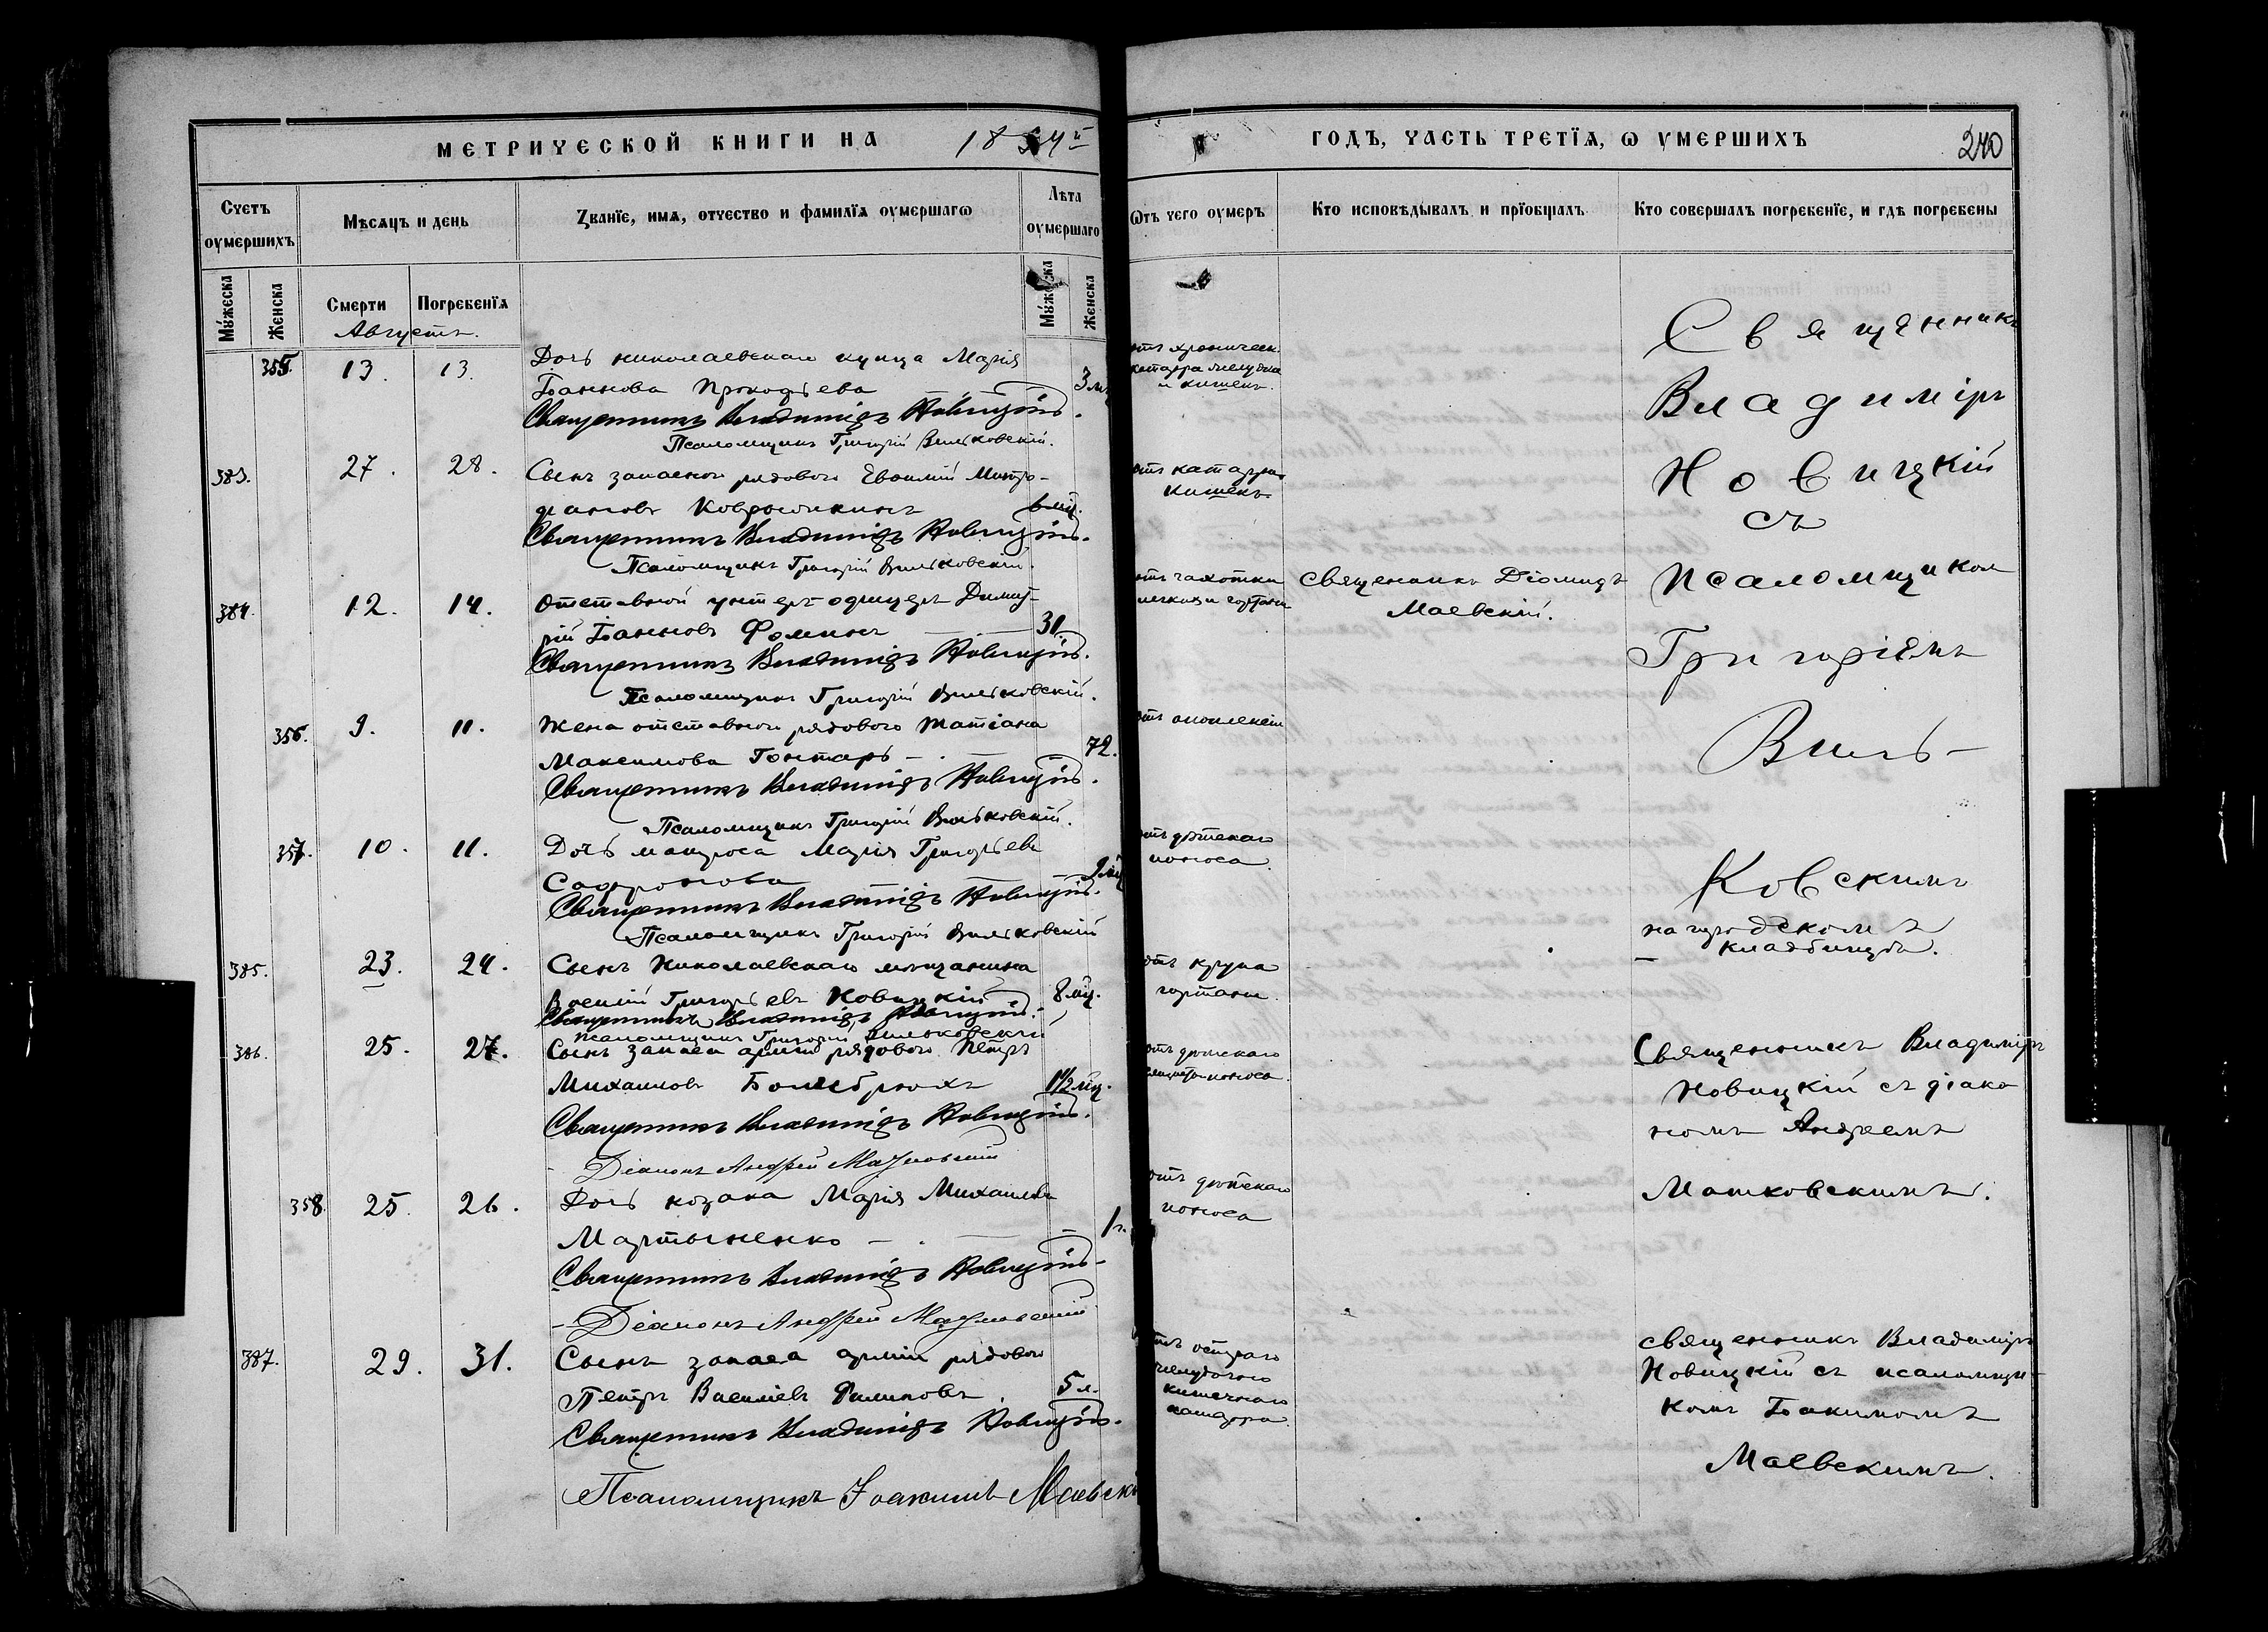 МЕТРИЧЕСКОЙ КНИГИ НА 1894й
ГОДЪ, ЧАСТЬ ТРЕТІѦ, Ѡ УМЕРШИХЪ
240
Счетъ оумершихъ
Мѣсяцъ и день
Званіе, имѧ, отчество и фамиліѧ оумершагѡ
Лѣта оумершаго
Ѡтъ чего оумеръ
Кто исповѣдывалъ и пріобщалъ
Кто совершалъ погребеніе, и гдѣ погребены
Мужеска
Женска
Смерти
Погребеніѧ
Мужеска
Женска
Августъ.
355. 13. 13. Дочь николаевскаго купца Марія
Іоаннова Прокофьева 3 м.
Священникъ Владиміръ Новицкій.
Псаломщикъ Григорій Вильковскій.
отъ хроническ.
катарра желудка
и кишекъ.
383. 27. 28. Сынъ запаснаго рядового Евѳимій Митро-
фановъ 6 мц.
Священникъ Владиміръ Новицкій.
Псаломщикъ Григорій Вильковскій.
отъ катарра
кишекъ
384. 12. 14. Отставной унтеръ-офицеръ Димит-
рій Іоанновъ Фоминъ 31.
Священникъ Владиміръ Новицкій.
Псаломщикъ Григорій Вильковскій.
отъ чахотки
легкихъ и гортани
Священникъ Діомидъ
Маевскій.
356. 9. 11. Жена отставного рядового Татіана
Максимова Гонтарь 72.
Священникъ Владиміръ Новицкій.
Псаломщикъ Григорій Вильковскій.
отъ
357. 10. 11. Дочь матроса Марія Григорьева
Софронова 9 мц
Священникъ Владиміръ Новицкій.
Псаломщикъ Григорій Вильковскій
отъ дѣтскаго
поноса.
385. 23. 24. Сынъ Николаевскаго мѣщанина
Василій Григорьевъ Новицкій 8 мц.
Священникъ Владиміръ Новицкій.
Псаломщикъ Григорій Вильковскій
отъ крупа
гортани.
Священникъ
Владиміръ
Новицкій
съ
псаломщикомъ
Григоріемъ
Виль-
ковскимъ
на городскомъ
кладбищѣ.
386. 25. 27. Сынъ запаса арміи рядового Петръ
Михаиловъ 1½ мц.
Священникъ Владиміръ Новицкій.
Діаконъ Андрей Мацковскій
отъ дѣтскаго
поноса.
Священникъ Владиміръ
Новицкій съ діако
номъ Андреемъ
Мацковскимъ.
358. 25. 26. Дочь козака Марія Михаилова
Мартыненко 1 г.
Священникъ Владиміръ Новицкій
Діаконъ Андрей Мацковскій
отъ дѣтскаго
поноса
387. 29. 31. Сынъ запаса арміи рядового
Петръ Василіевъ Филиповъ 5 л.
Священникъ Владиміръ Новицкій.
Псаломщикъ Іоакимъ Маевскій
отъ остраго
желудочно
кишечнаго
катарра.
священникъ Владиміръ
Новицкій съ псаломщи-
комъ Іоакимомъ
Маевскимъ.